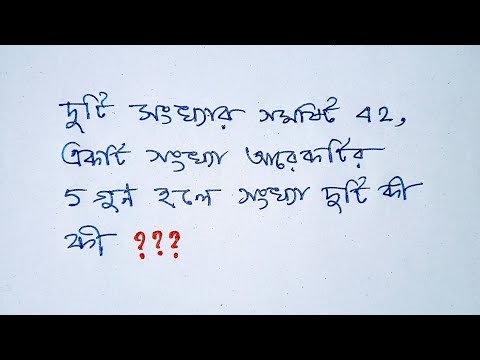 দুটি সংখ্যার সমষ্টি 42,
একটি সংখ্যা আরেকটির
5 গুন হলে সংখ্যা দুটি কী
কী ???